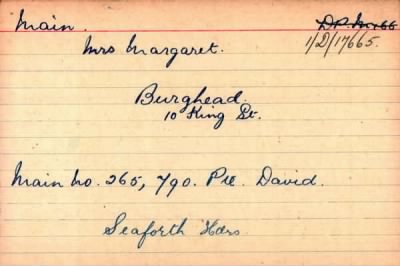 Main.
1/D/17665.
Mrs Margaret.
Burghead.
10 King St.
Main No. 265,790. Pte. David.
Seaforth Hdrs